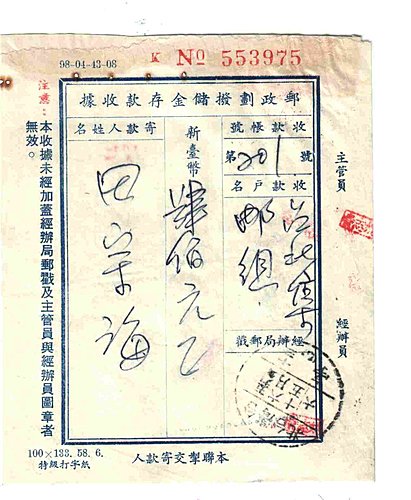 98-04-43-08
K № 553975
郵政劃撥儲金存款收據
收款帳號
第201號
收款戶名
郵組
經辦局郵戳
新臺幣
肆佰元正
寄款人姓名
田
主管員
經辦員
注意：
本收據未經加蓋經辦局郵戳及主管員與經辦員圖章者
無效。
本聯掣交寄款人
100×133. 58. 6.
特級打字紙